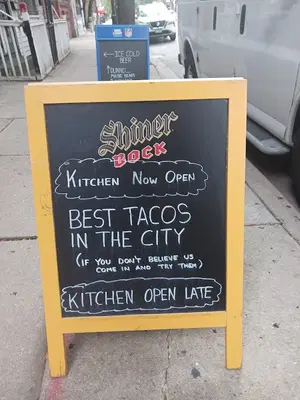 ICE COLD
BEER
Shiner
BOCK
KITCHEN NOW OPEN
BEST TACOS
IN THE CITY
(IF YOU DON'T BELIEVE US
COME IN AND TRY THEM)
KITCHEN OPEN LATE